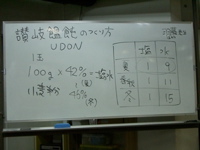 讃岐饂飩のつくり方
UDON
塩 水
夏 1 9
春秋 1 11
冬 1 15
100g × 42%＝塩水
小麦粉
(夏)
45%
(冬)